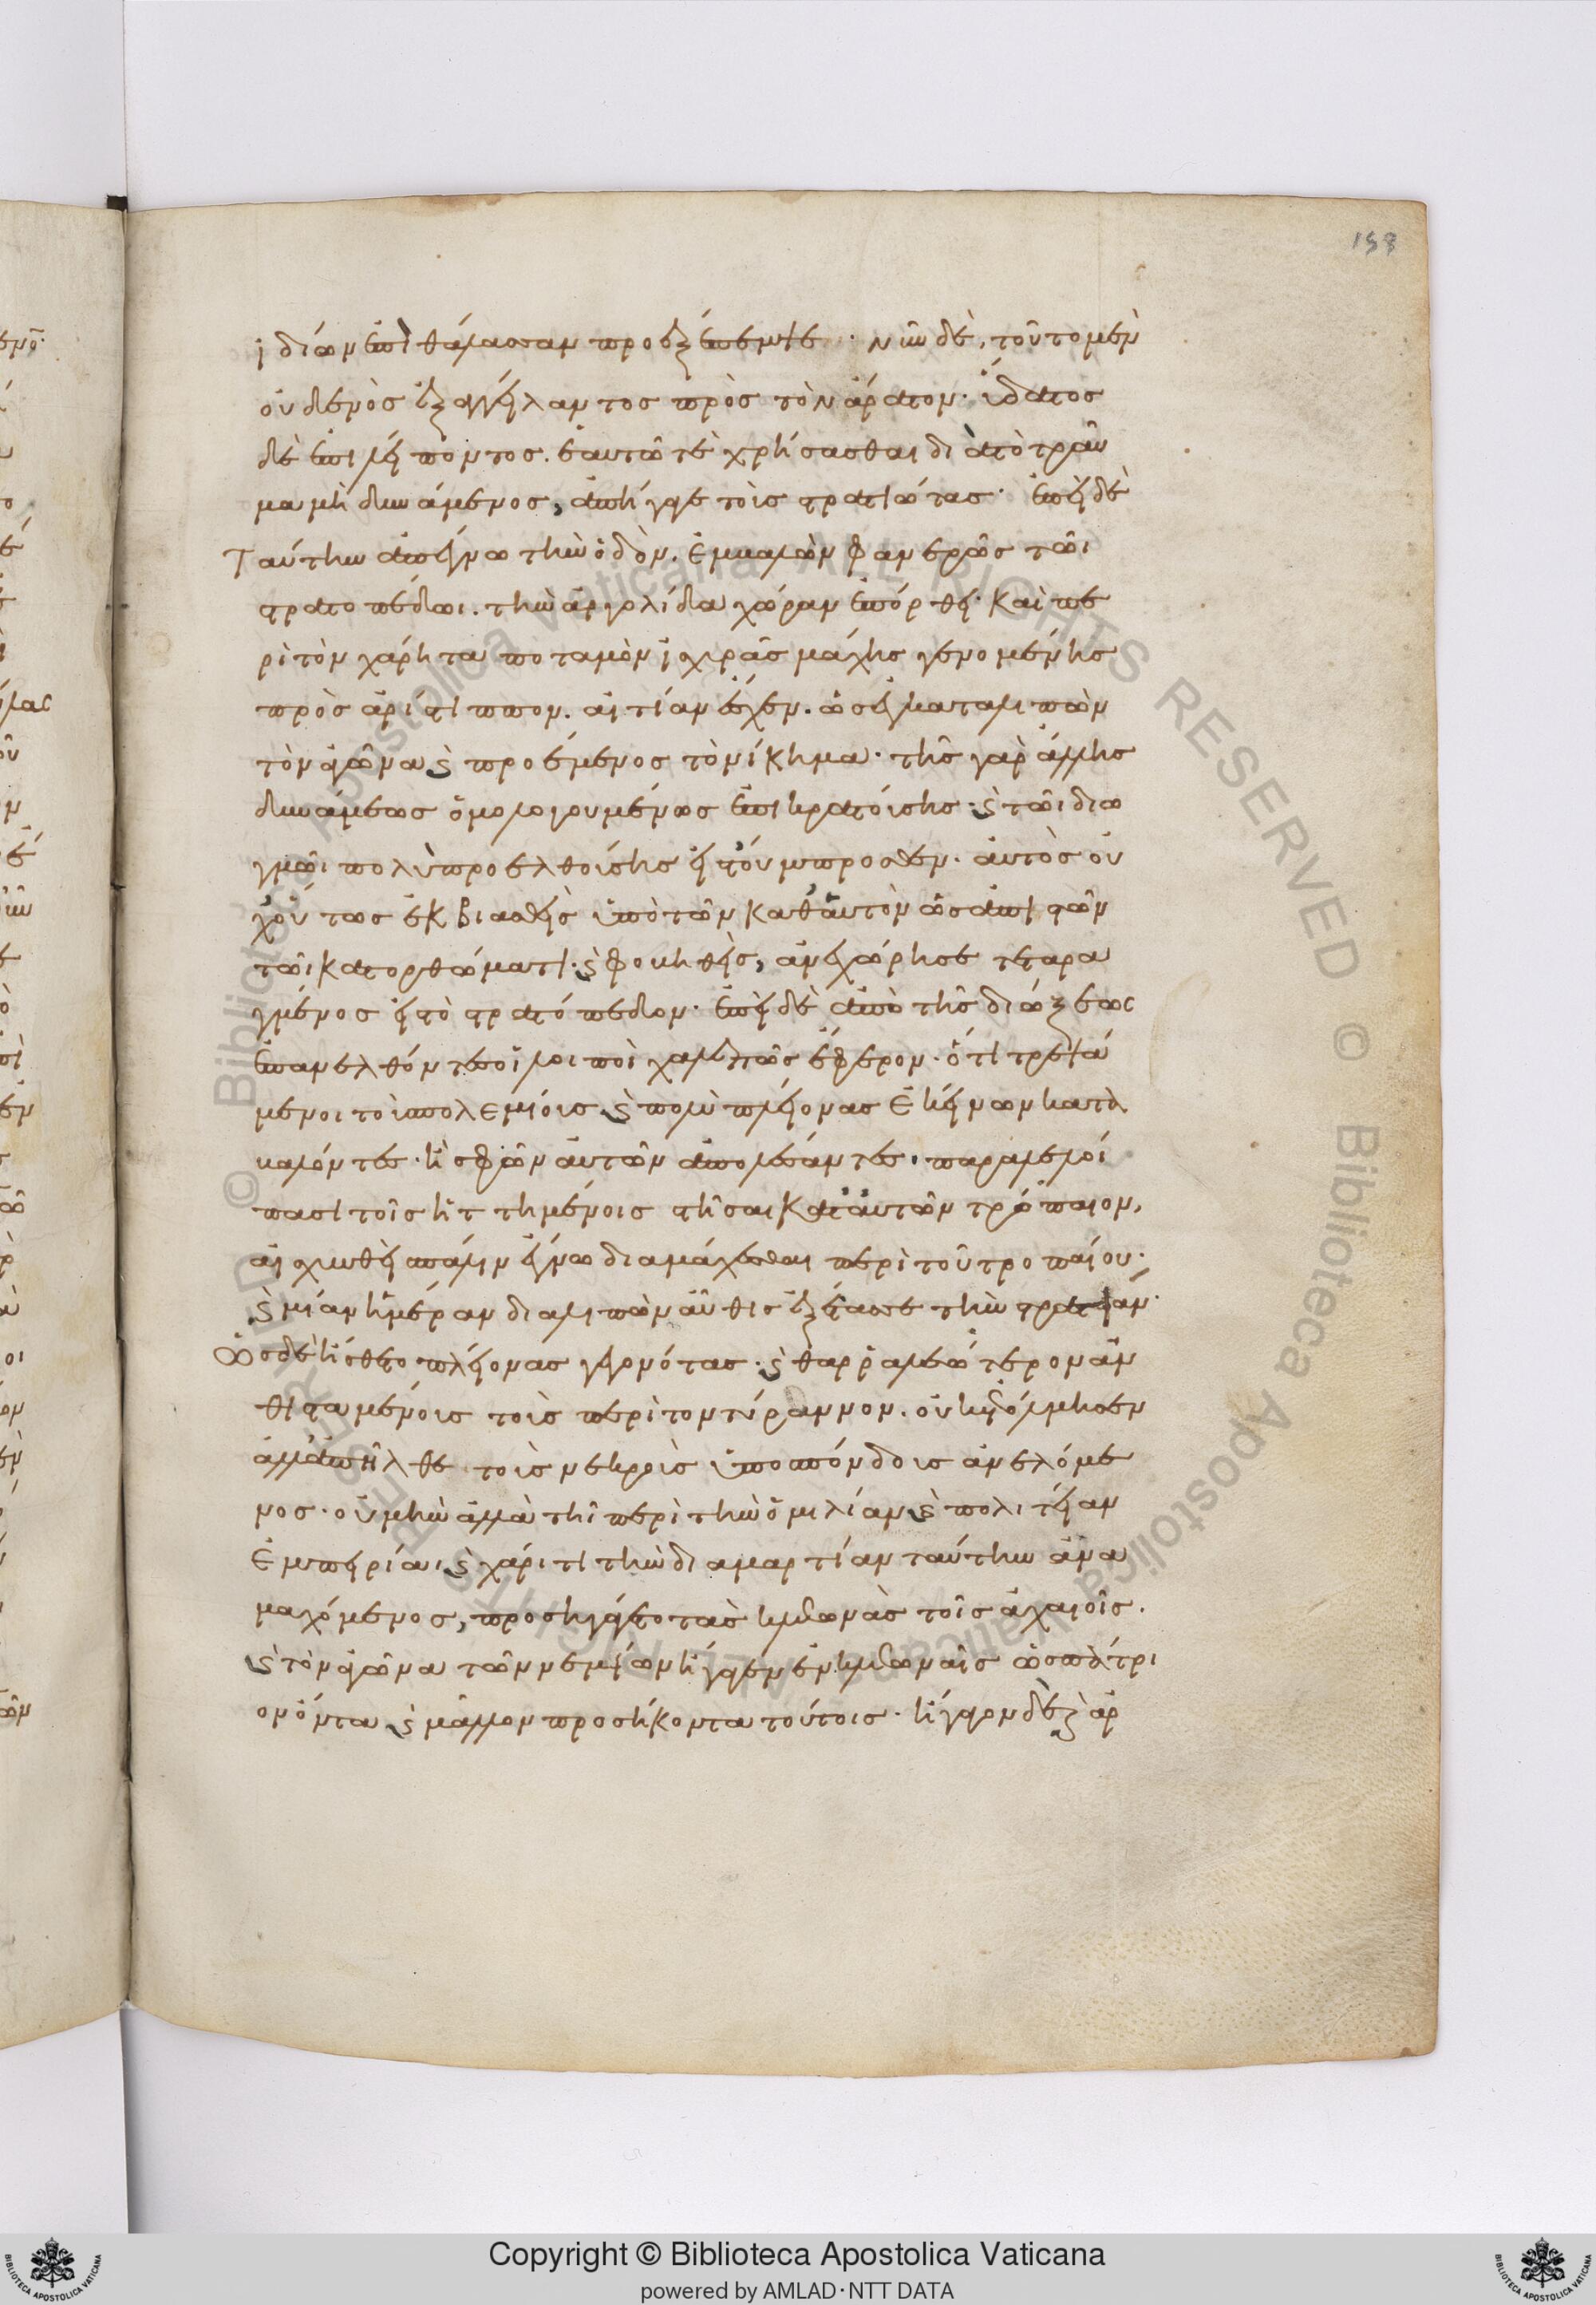 158
ἰδίων ἐπὶ θάλασσαν προεξέπεμπε· νῦν δὲ, τοῦτο μὲν
οὐδενὸς ἐξαγγείλαντος πρὸς τὸν ἄρατον· ὕδατος
δὲ ἐπιλείποντος. ἑαυτῶ τε χρήσασθαι διὰ τὸ τραῦ
μα μὴ δυνάμενος, ἀπήγαγε τοὺς στρατιώτας· ἐπεὶ δὲ
ταύτην ἀπείπω τὴν ὁδὸν. ἐμβαλὼν φανερῶς τῶι
στρατοπέδωι. τὴν ἀργολίδα χώραν ἐπόρθει· καὶ πε
ρὶ τὸν χάρητα ποταμὸν ἰσχυρᾶς μάχης γενομένης
πρὸς ἀρίστιππον. αἰτίαν ἔσχεν. ὡς ἐγκαταλιπὼν
τὸν ἀγῶνα καὶ προέμενος τὸ νίκημα· τῆς γὰρ ἄλλης
δυνάμεως ὁμολογουμένως ἐπικρατούσης· καὶ τῶι διω
γμῶι πολὺ προελθούσης εἰς τοὔμπροσθεν. αὐτὸς οὐ
χ οὕτως ἐκβιασθεὶς ὑπὸ τῶν καθ' αὑτὸν ὡς ἀπιστῶν
τῶι κατορθώματι· καὶ φοβηθεὶς, ἀνεχώρησε τεταρα
γμένος εἰς τὸ στρατόπεδον· ἐπεὶ δὲ ἀπὸ τῆς διώξεως
ἐπανελθόντες οἱ λοιποὶ χαλεπῶς ἔφερον· ὅτι τρεψά
μενοι τοὺς πολεμίους καὶ πολὺ πλείονας ἐκείνων κατα
βαλόντες· ἢ σφῶν αὐτῶν ἀπολέσαντες· παραλελοί
πασι τοῖς ἡττημένοις στῆσαι κατ' αὐτῶν τρόπαιον,
αἰσχυνθεὶς πάλιν ἔγνω διαμάχεσθαι περὶ τοῦ τροπαίου·
καὶ μίαν ἡμέραν διαλιπὼν αὖθις ἐξέτασσε τὴν στρατιάν·
ὡς δὲ ἤσθετο πλείονας γεγονότας· καὶ θαρραλεώτερον ἀν
θισταμένους τοὺς περὶ τὸν τύραννον. οὐκ ἐτόλμησεν
ἀλλ' ἀπῆλθε τοὺς νεκροὺς ὑποσπόνδους ἀνελόμε
νος· οὐ μὴν ἀλλὰ τῆ περὶ τὴν ὁμιλίαν καὶ πολιτείαν
ἐμπειρίαι καὶ χάριτι τὴν διαμαρτίαν ταύτην ἀνα
μαχόμενος, προσηγάγετο τὰς κλεωνὰς τοῖς ἀχαιοῖς.
καὶ τὸν ἀγῶνα τῶν νεμείων ἤγαγεν ἐν κλεωναῖς ὡς πάτρι
ον ὄντα καὶ μᾶλλον προσήκοντα τούτοις· ἤγαγον δὲ καὶ ἀρ
Copyright © Biblioteca Apostolica Vaticana
powered by AMLAD·NTT DATA